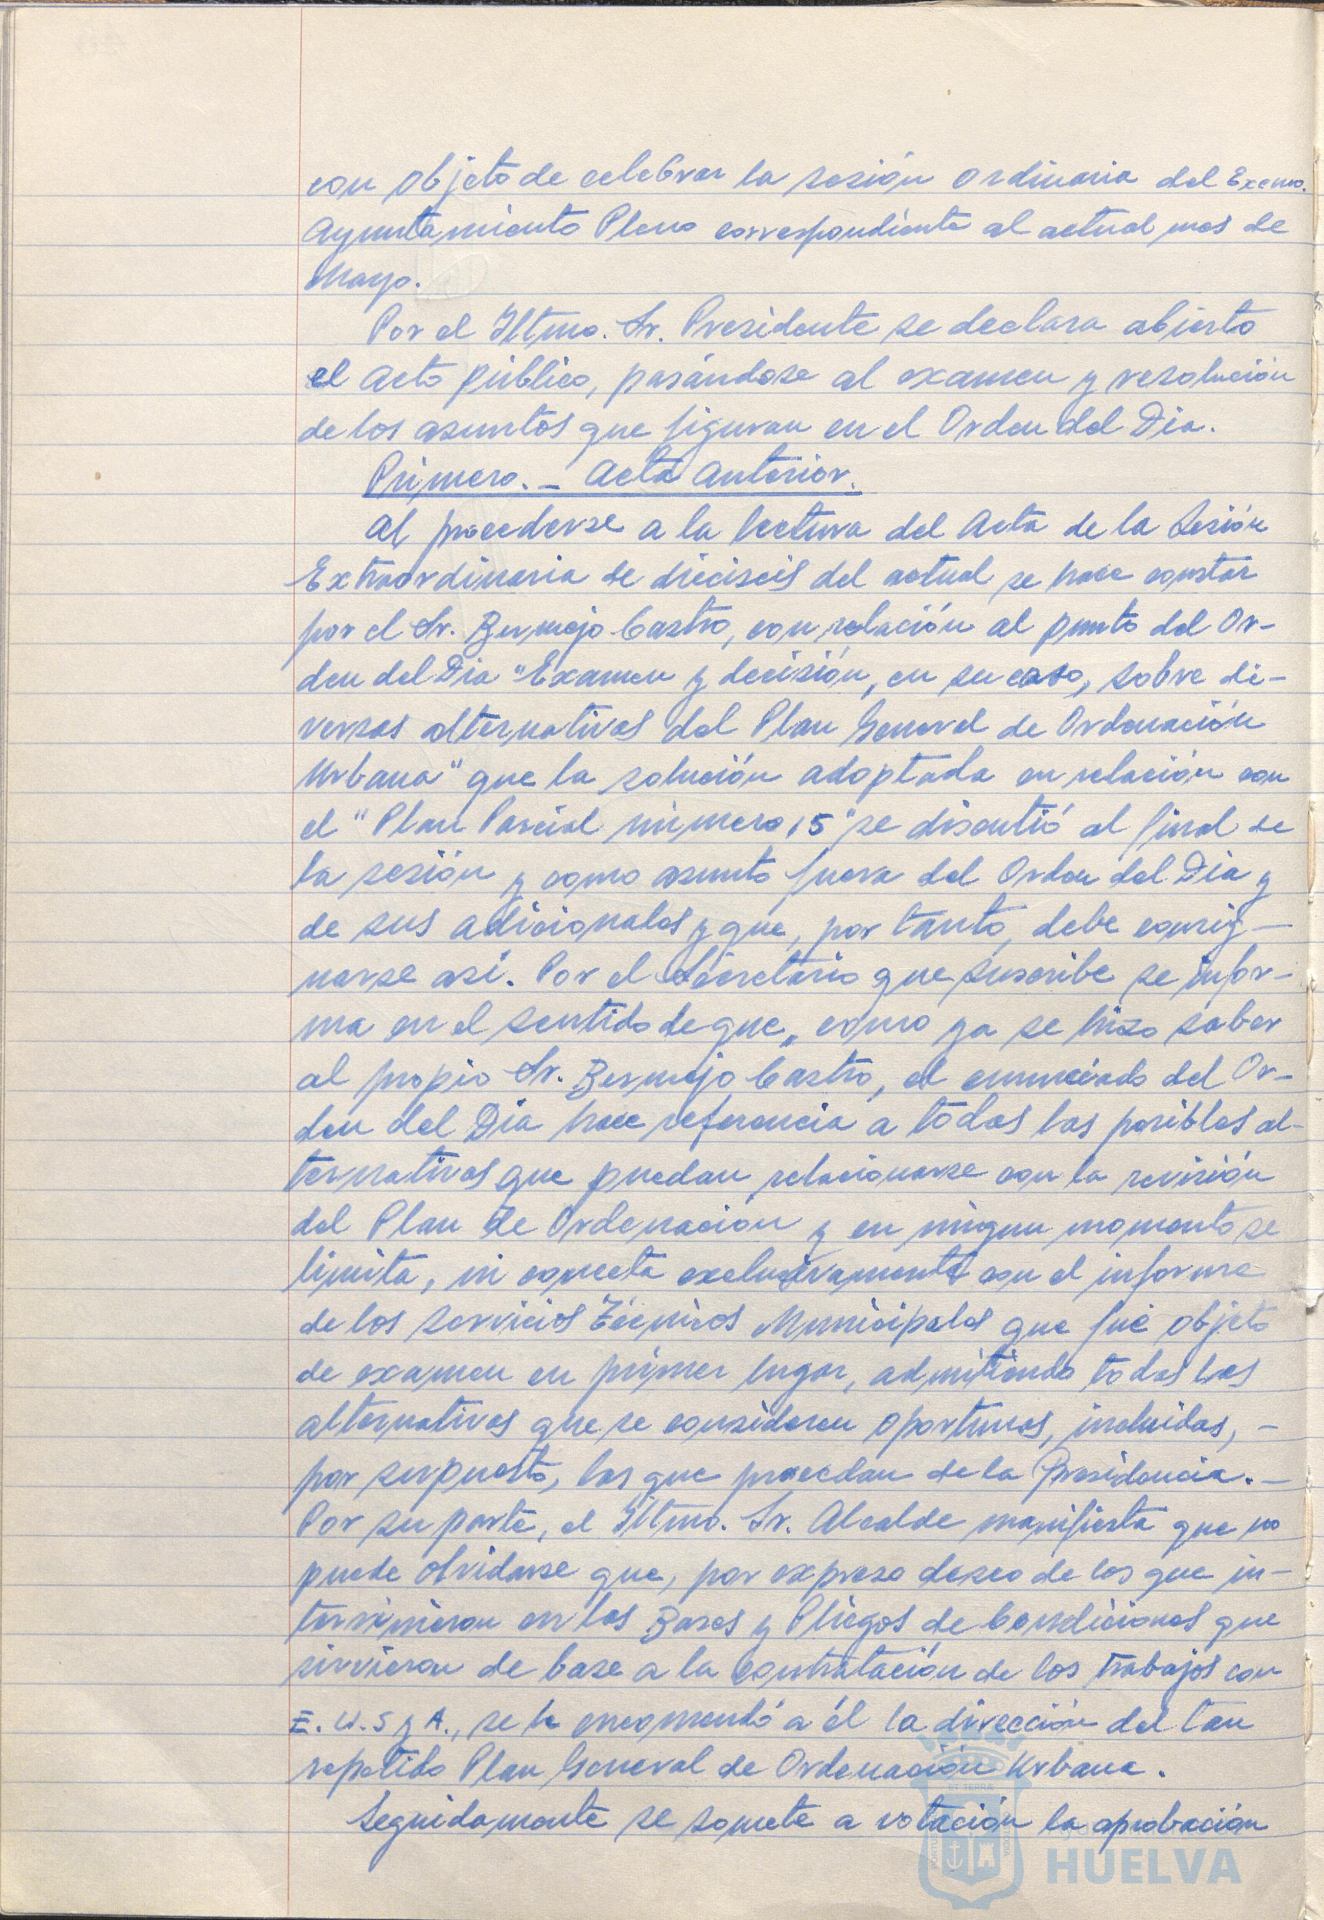 con objeto de celebrar la sesión ordinaria del Excmo.
Ayuntamiento Pleno correspondiente al actual mes de
Mayo.
Por el Iltmo. Sr. Presidente se declara abierto
el acto público, pasándose al examen y resolución
de los asuntos que figuran en el Orden del Dia.
Primero. - Acta anterior.
Al procederse a la lectura del Acta de la Sesión
Extraordinaria de dieciseis del actual se hace constar
por el Sr. Bermejo Castro, con relación al punto del Or-
den del Dia "Examen y decisión, en su caso, sobre di-
versas alternativas del Plan General de Ordenación
Urbana" que la solución adoptada en relación con
el "Plan Parcial número 15" se discutió al final de
la sesión y como asunto fuera del Orden del Dia y
de sus adicionales y que, por tanto, debe consig-
narse así. Por el Secretario que suscribe se infor-
ma en el sentido de que, como ya se hizo saber
al propio Sr. Bermejo Castro, el enunciado del Or-
den del Dia hace referencia a todas las posibles al-
ternativas que puedan relacionarse con la revisión
del Plan de Ordenación y en ningun momento se
limita, ni conecta exclusivamente con el informe
de los Servicios Técnicos Municipales que fué objeto
de examen en primer lugar, admitiendo todas las
alternativas que se consideren oportunas, incluidas, -
por supuesto, las que procedan de la Presidencia. -
Por su parte, el Iltmo. Sr. Alcalde manifiesta que no
puede olvidarse que, por expreso deseo de los que in-
tervinieron en las Bases y Pliegos de Condiciones que
sirvieron de base a la contratación de los trabajos con
E. U. S y A., se le encomendó a él la dirección del tan
repetido Plan General de Ordenación Urbana.
Seguidamente se somete a votación la aprobación
HUELVA